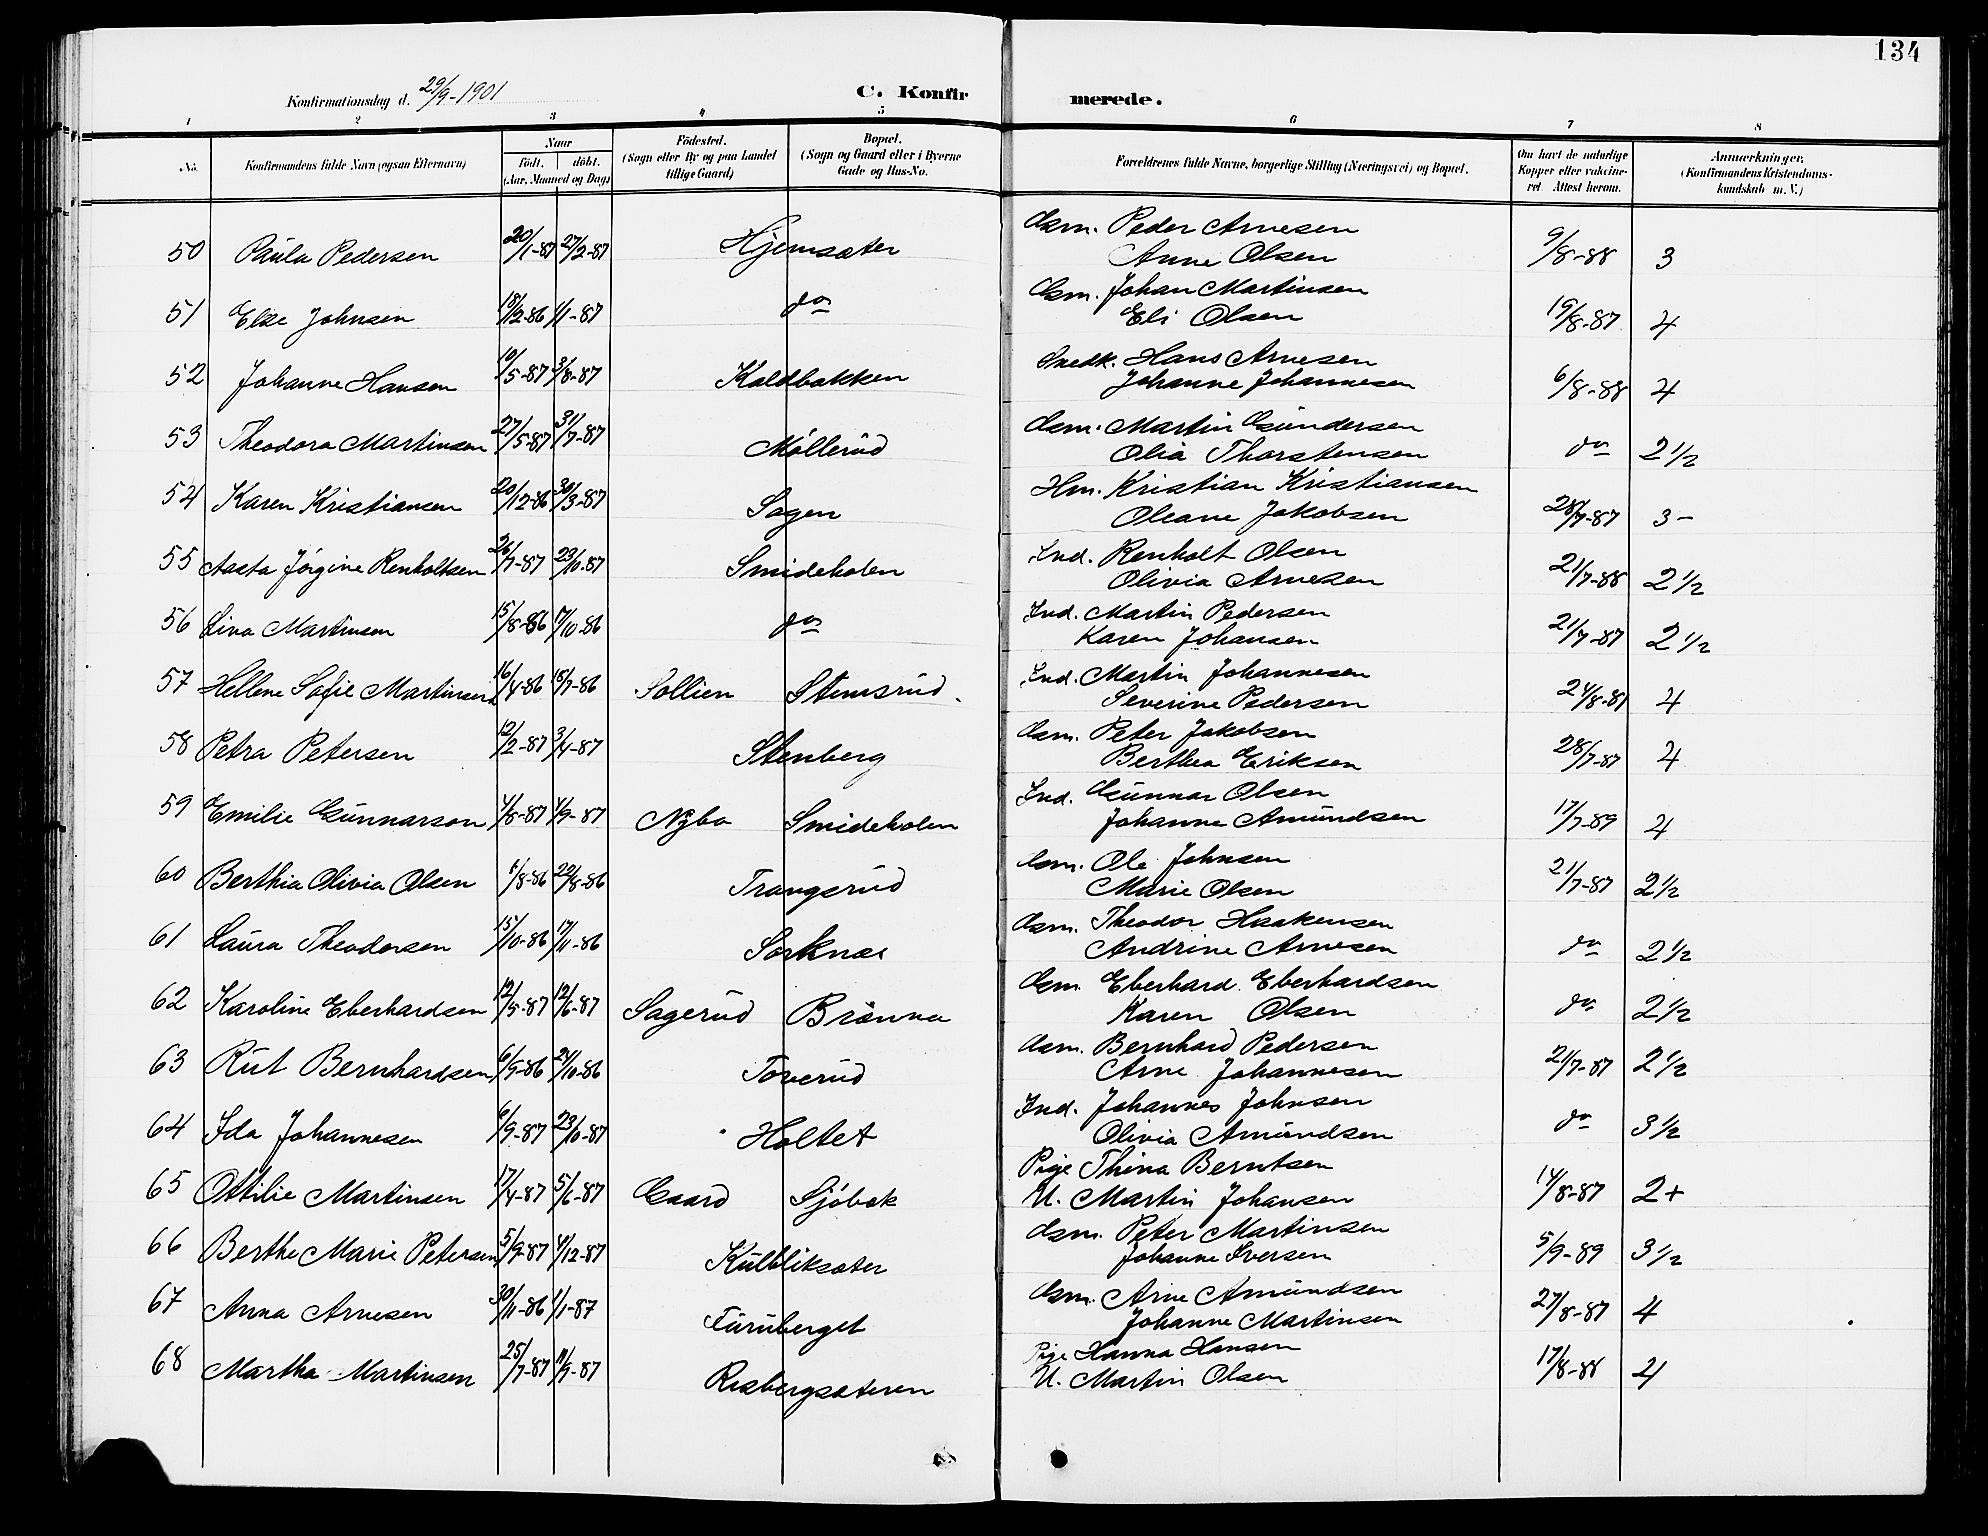 134
Konfirmationsdag d. 29/9-1901 C. Konfirmerede.
1 2 3 4 5 6 7 8
No. Konfirmandens fulde Navn (ogsaa Efternavn) Naar født. døbt. (Aar, Maaned og Dag) Fødested. (Sogn eller By og paa Landet tillige Gaard) Bopæl. (Sogn og Gaard eller i Byerne Gade og Hus-No. Forældrenes fulde Navne, borgerlige Stilling (Næringsvei) og Bopæl. Om havt de naturlige Kopper eller vaccineret. Attest herom. Anmærkninger, (Konfirmandens Kristendomskundskab m. V.)
50 Paula Pedersen 20/1-87 27/2-87 Hjemsæter Gsm. Peder Arnesen
Anne Olsen 9/8-88 3
51 Else Johnsen 18/12-86 1/1-87 do Gsm. Johan Martinsen
Eli Olsen 19/8-87 4
52 Johanne Hansen 10/5-87 3/8-87 Koldbakken Snedk. Hans Arnesen
Johanne Johannesen 6/8-88 4
53 Theodora Martinsen 27/5-87 31/7-87 Møllerud Gsm. Martin Gundersen
Olia Thorstensen do 2 1/2
54 Karen Kristiansen 20/12-86 30/3-87 Sagen Hm. Kristian Kristiansen
Oleane Jakobsen 28/7-87 3-
55 Aasta Jørgine Renholtsen 26/7-87 23/10-87 Smideholen Ind. Renholt Olsen
Olivia Arnesen 21/7-88 2 1/2
56 Lina Martinsen 15/8-86 17/10-86 do Ind. Martin Pedersen
Karen Johansen 21/7-87 2 1/2
57 Hellene Sofie Martinsen 16/4-86 18/7-86 Sollien Stemsrud Ind. Martin Johannesen
Severine Pedersen 24/8-87 4
58 Petra Petersen 12/2-87 3/4-87 Stenberg Gsm. Peter Jakobsen
Berthea Eriksen 28/7-87 4
59 Emilie Gunnarson 4/8-87 4/9-87 Nybo Smideholen Ind. Gunnar Olsen
Johanne Amundsen 17/7-89 4
60 Berthia Olivia Olsen 1/8-86 22/8-86 Trangsrud Gsm. Ole Johnsen
Marie Olsen 21/7-87 2 1/2
61 Laura Theodorsen 15/10-86 17/11-86 Sorknæs Gsm. Theodor Haakensen
Andrine Arnesen do 2 1/2
62 Karoline Eberhardsen 12/5-87 12/6-87 Sagerud Brønna Gsm. Eberhard Eberhardsen
Karen Olsen do 2 1/2
63 Rut Bernhardsen 6/9-86 24/10-86 Toverud Gsm. Bernhard Pedersen
Arne Johannesen 21/7-87 2 1/2
64 Ida Johannesen 6/9-87 23/10-87 Holtet Ind. Johannes Johnsen
Olivia Amundsen do 3 1/2
65 Ottilie Martinsen 17/4-87 5/6-87 Gaard Sjøbak Pige Thina Berntsen
U. Martin Johansen 14/8-87 2+
66 Berthe Marie Petersen 5/9-87 4/12-87 Kulbliksæter Gsm. Peter Martinsen
Johanne Iversen 5/9-89 3 1/2
67 Anna Arnesen 30/11-86 1/1-87 Furuberget Gsm. Arne Amundsen
Johanne Martinsen 27/8-87 4
68 Martha Martinsen 25/7-87 11/9-87 Risbergsæteren Pige Hanna Hansen
U. Martin Olsen 17/8-88 4